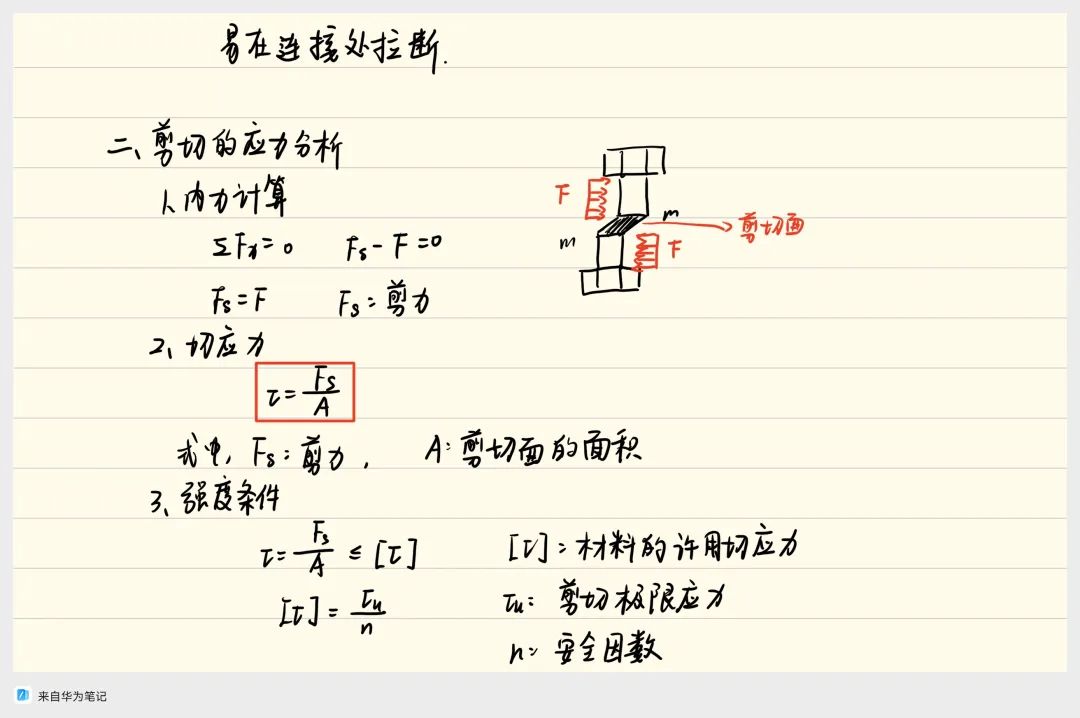 易在连接处拉断.
二、剪切的应力分析
1、内力计算
ΣFx=0 Fs-F=0
Fs=F Fs:剪力
2、切应力
τ=Fs/A
式中, Fs:剪力, A:剪切面的面积
3、强度条件
τ=Fs/A ≤ [τ] [τ]:材料的许用切应力
[τ]=τu/n τu:剪切极限应力
n:安全因数
F
m
剪切面
m
F
来自华为笔记